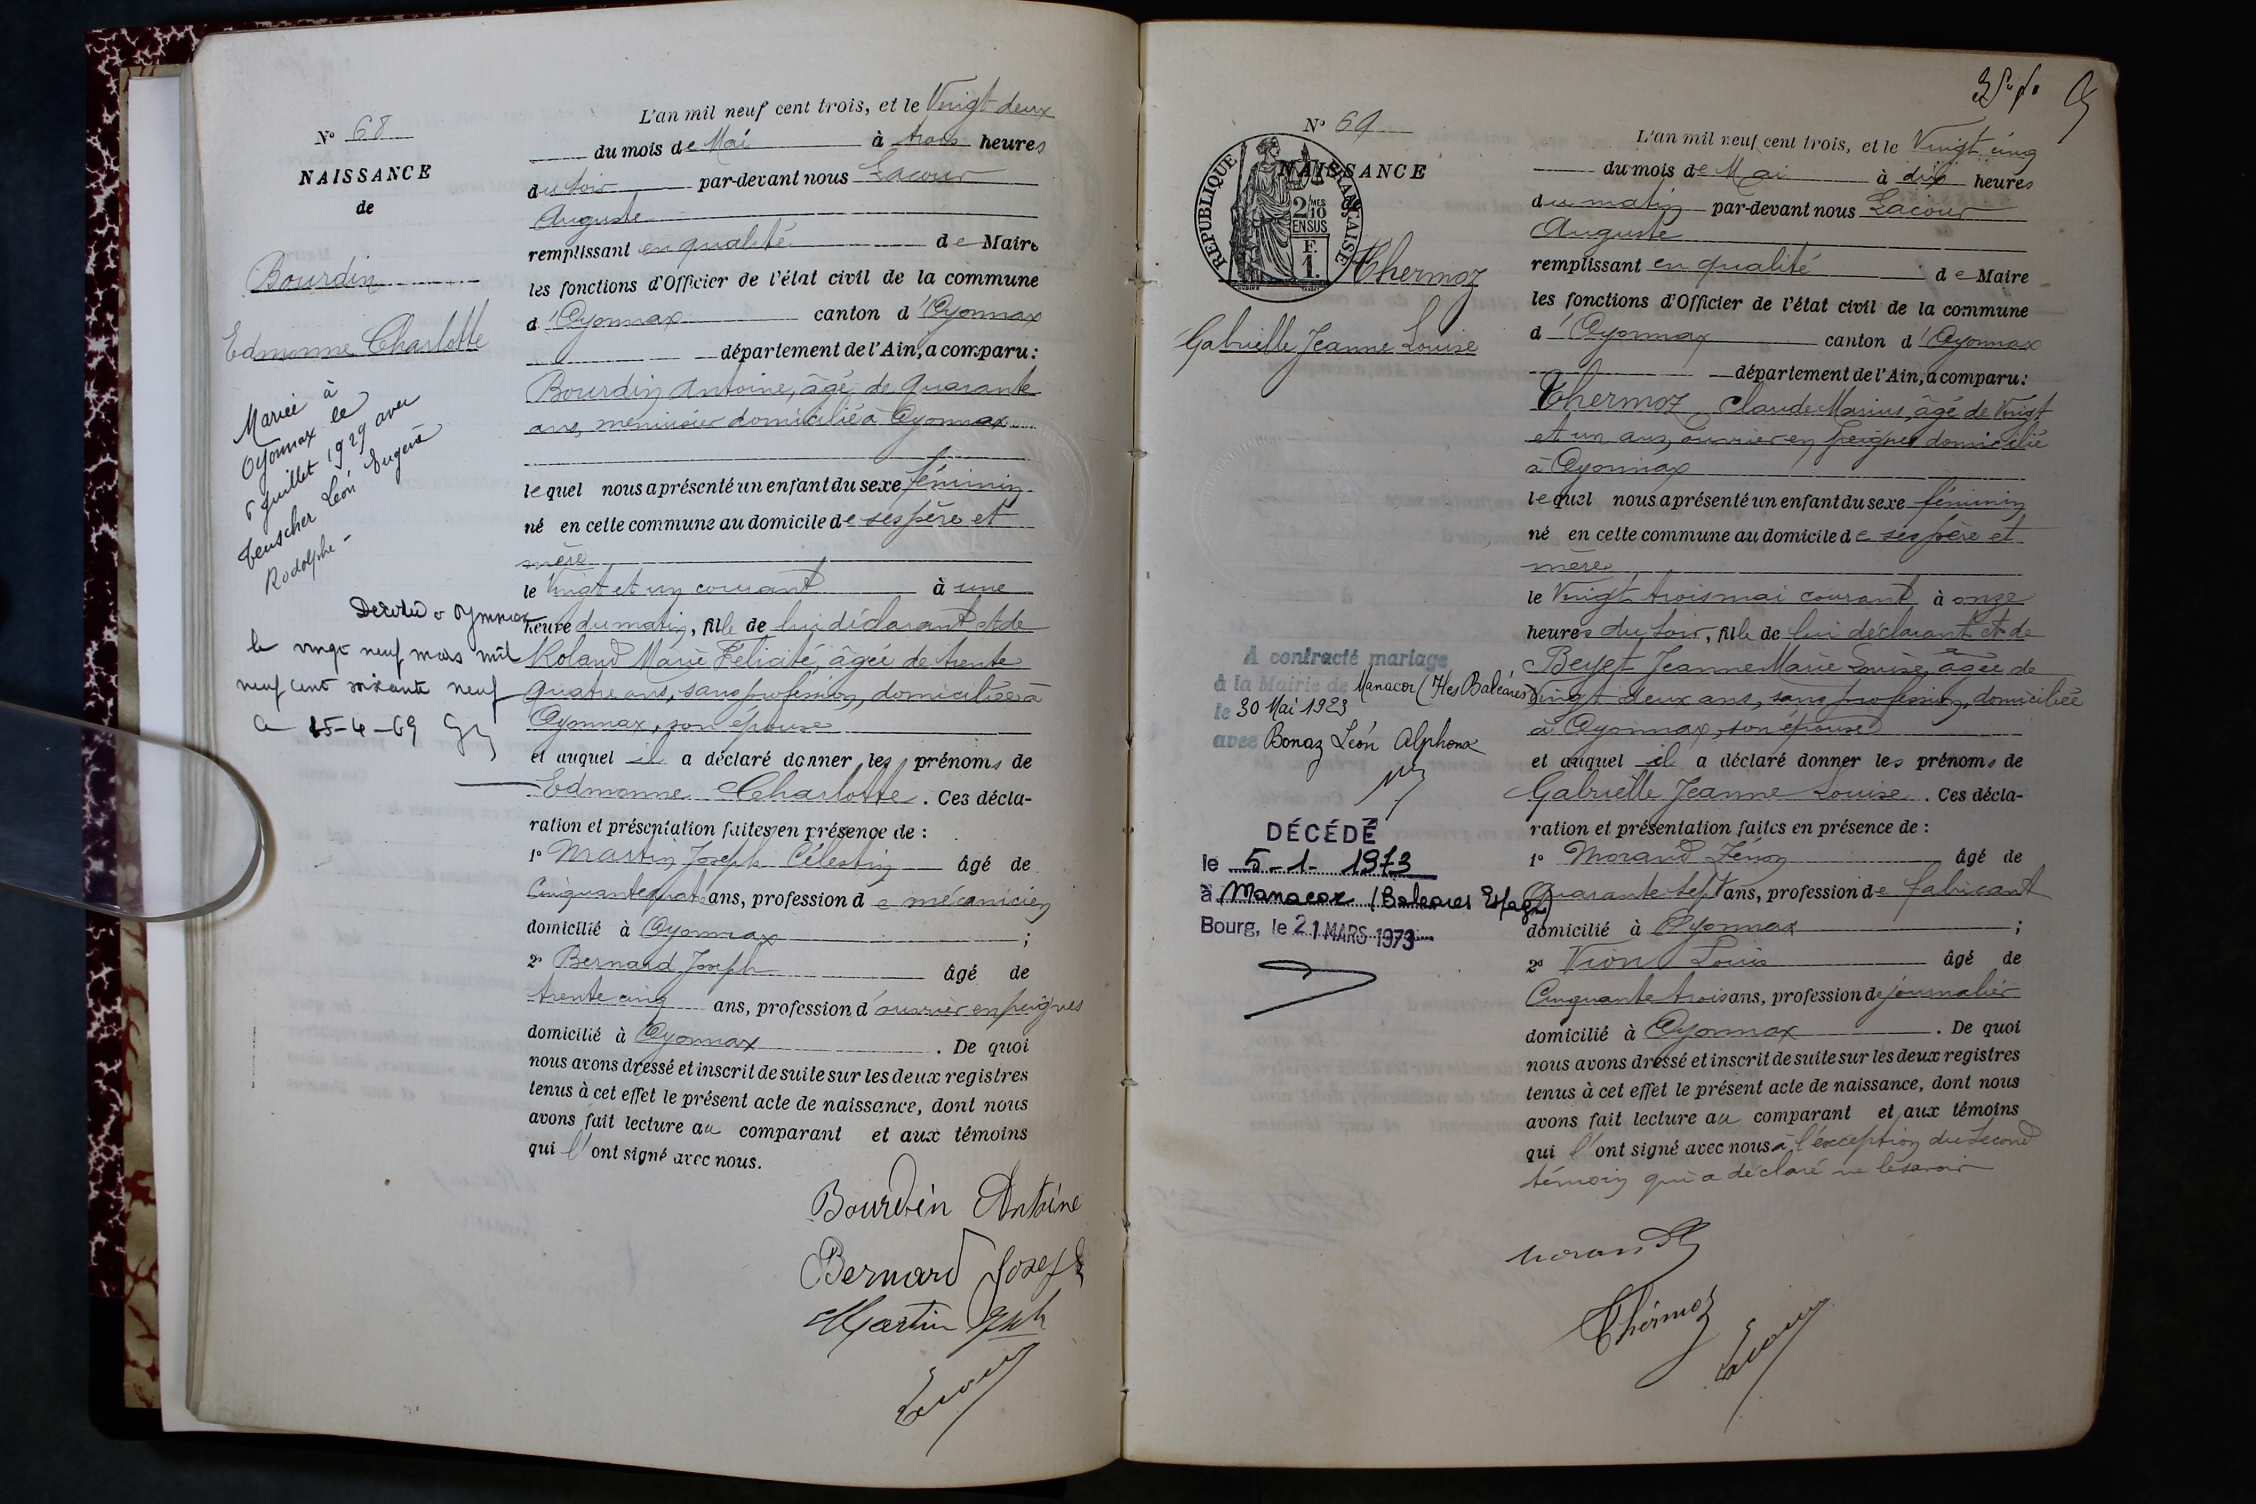 N° 68
NAISSANCE
de
Bourdin
Edmonne Charlotte
Mariée à
Oyonnax le
6 Juillet 1929 avec
Teuscher Léon Eugène
Rodolphe -
Décédée à Oyonnax
le vingt neuf mars mil
neuf cent soixante neuf
le 15-4-69
L'an mil neuf cent trois, et le Vingt deux
du mois de Mai à trois heures
du soir par-devant nous Lacour
Auguste
remplissant en qualité de Maire
les fonctions d'Officier de l'état civil de la commune
d'Oyonnax canton d'Oyonnax
département de l'Ain, a comparu :
Bourdin Antoine, âgé de quarante
ans, menuisier domicilié à Oyonnax
lequel nous a présenté un enfant du sexe féminin
né en cette commune au domicile de ses père et
mère
le Vingt et un courant à une
heure du matin, fille de lui déclarant et de
Roland Marie Félicité, âgée de trente
quatre ans, sans profession, domiciliée à
Oyonnax, son épouse
et auquel il a déclaré donner les prénoms de
Edmonne Charlotte. Ces décla-
ration et présentation faites en présence de :
1° Martin Joseph Célestin âgé de
Cinquante quatre ans, profession de mécanicien
domicilié à Oyonnax ;
2° Bernard Joseph âgé de
trente cinq ans, profession d'ouvrier en peignes
domicilié à Oyonnax. De quoi
nous avons dressé et inscrit de suite sur les deux registres
tenus à cet effet le présent acte de naissance, dont nous
avons fait lecture au comparant et aux témoins
qui l'ont signé avec nous.
Bourdin Antoine
Bernard Josefh
Martin Jph
Lacour
N° 69
NAISSANCE
RÉPUBLIQUE FRANÇAISE
2/10MES
EN SUS
F.
1.
Thermoz
Gabrielle Jeanne Louise
A contracté mariage
à la Mairie de Manacor (Iles Baléares)
le 30 Mai 1923
avec Bonaz Léon Alphonse
DÉCÉDÉE
le 5-1-1973
à Manacor (Baleares Espagne)
Bourg, le 21 MARS 1973
L'an mil neuf cent trois, et le Vingt cinq
du mois de Mai à dix heures
du matin par-devant nous Lacour
Auguste
remplissant en qualité de Maire
les fonctions d'Officier de l'état civil de la commune
d'Oyonnax canton d'Oyonnax
département de l'Ain, a comparu :
Thermoz Claude Marius, âgé de Vingt
et un ans, ouvrier en peignes domicilié
à Oyonnax
lequel nous a présenté un enfant du sexe féminin
né en cette commune au domicile de ses père et
mère
le Vingt trois mai courant à onze
heures du soir, fille de lui déclarant et de
Beyet Jeanne Marie Louise, âgée de
Vingt deux ans, sans profession, domiciliée
à Oyonnax, son épouse
et auquel il a déclaré donner les prénoms de
Gabrielle Jeanne Louise. Ces décla-
ration et présentation faites en présence de :
1° Morand Zénon âgé de
Quarante sept ans, profession de fabricant
domicilié à Oyonnax ;
2° Vion Louis âgé de
Cinquante trois ans, profession de journalier
domicilié à Oyonnax. De quoi
nous avons dressé et inscrit de suite sur les deux registres
tenus à cet effet le présent acte de naissance, dont nous
avons fait lecture au comparant et aux témoins
qui l'ont signé avec nous à l'exception du second
témoin qui a déclaré ne le savoir
Morand
Thermoz
Lacour